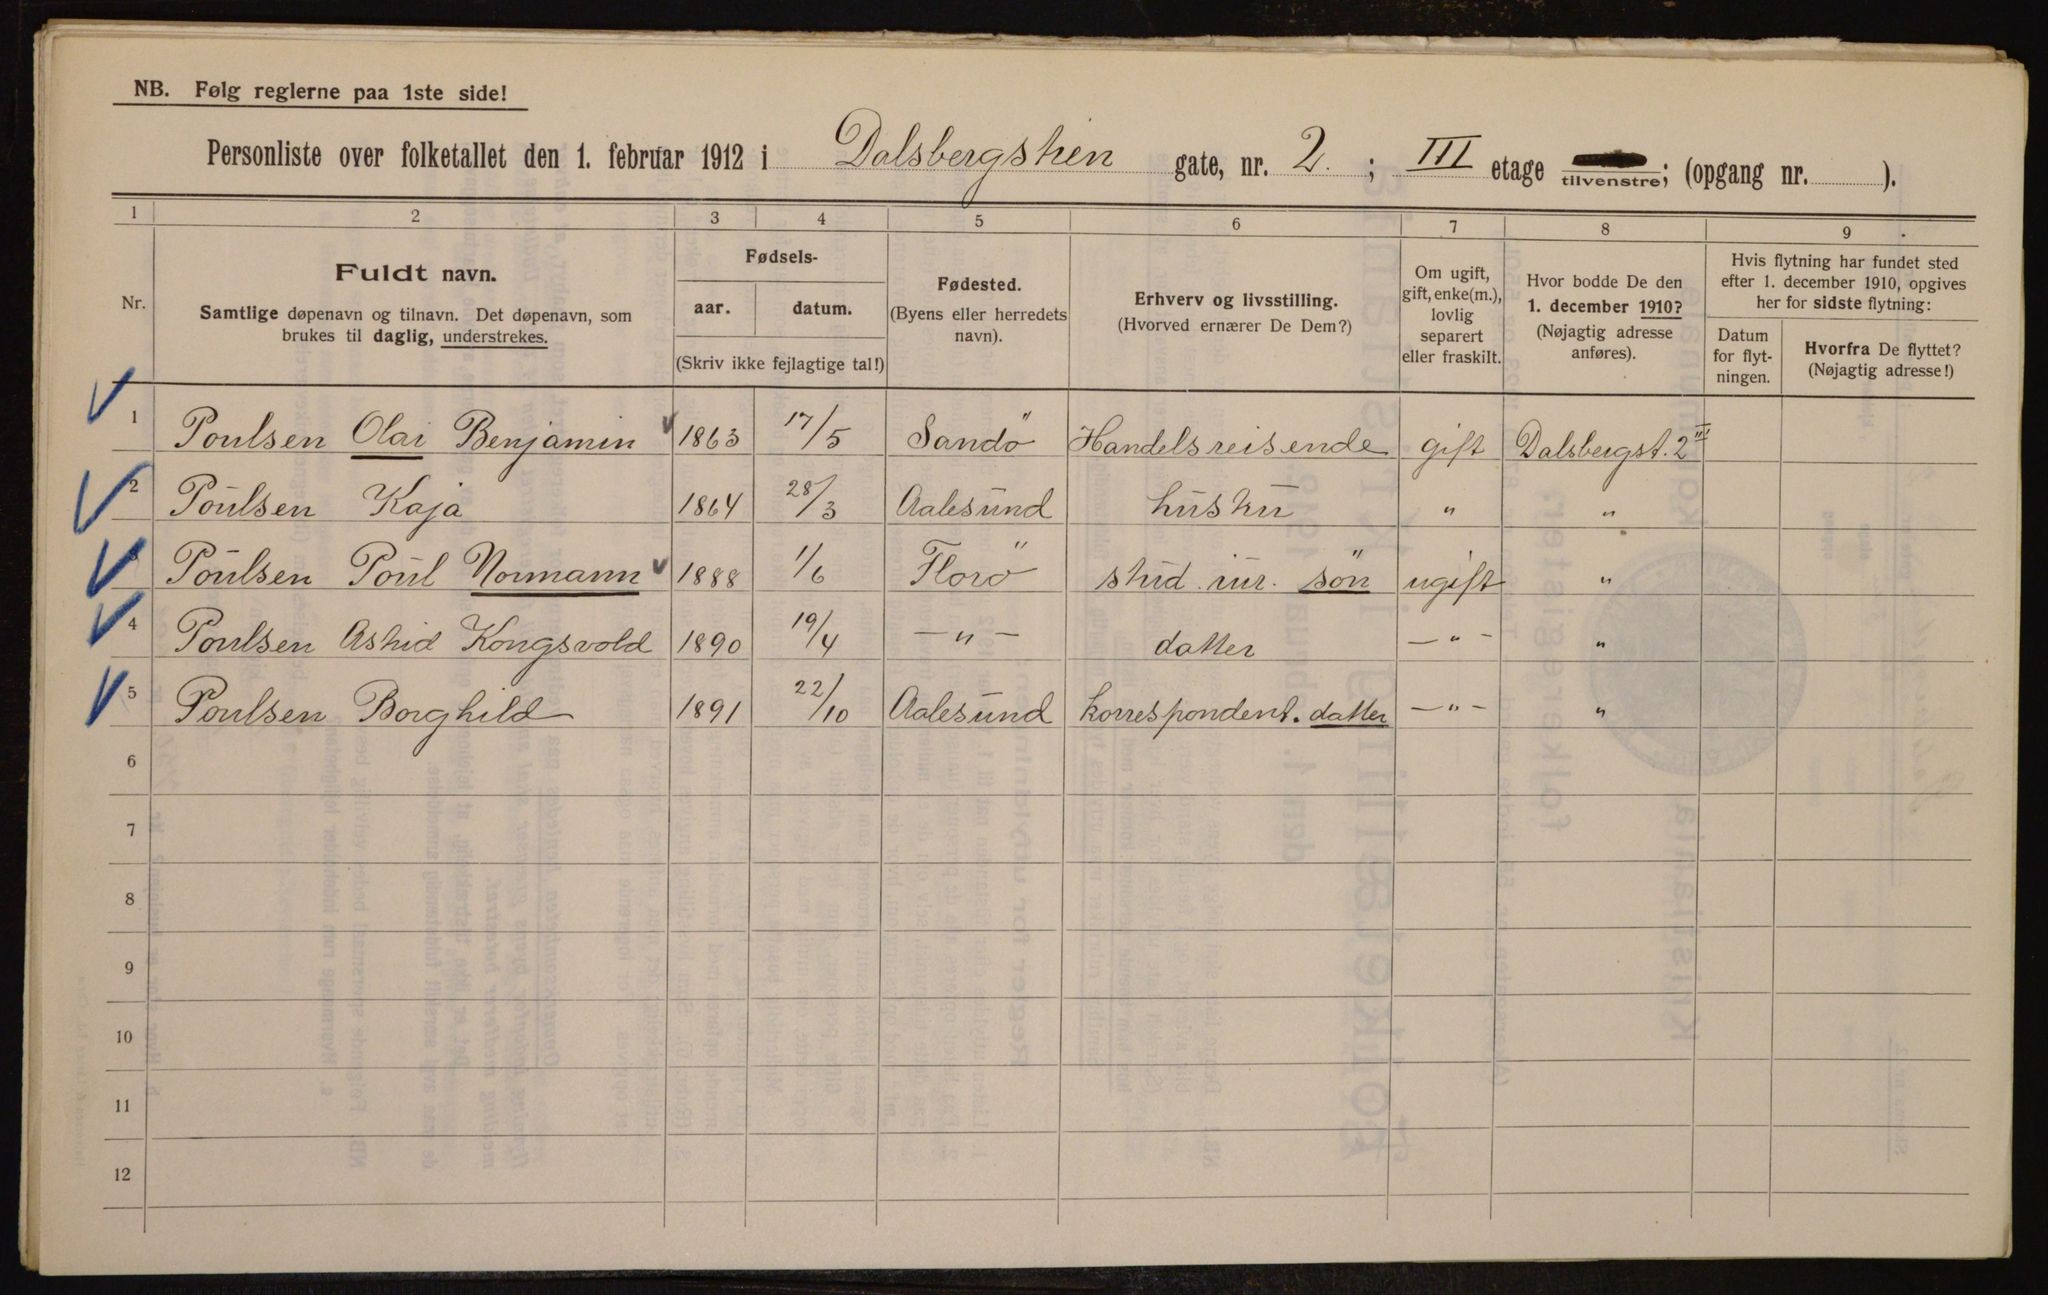 NB. Følg reglerne paa 1ste side!
Personliste over folketallet den 1. februar 1912 i Dalsbergstien gate, nr. 2. ; III etage tilvenstre; (opgang nr. ).
1 2 3 4 5 6 7 8 9
Nr.
Fuldt navn.
Samtlige døpenavn og tilnavn. Det døpenavn, som
brukes til daglig, understrekes.
Fødsels-
aar. datum.
(Skriv ikke fejlagtige tal!)
Fødested.
(Byens eller herredets
navn).
Erhverv og livsstilling.
(Hvorved ernærer De Dem?)
Om ugift,
gift, enke(m.),
lovlig
separert
eller fraskilt.
Hvor bodde De den
1. december 1910?
(Nøjagtig adresse
anføres).
Hvis flytning har fundet sted
efter 1. december 1910, opgives
her for sidste flytning:
Datum
for flyt-
ningen.
Hvorfra De flyttet?
(Nøjagtig adresse!)
1 Poulsen Olai Benjamin 1863 17/5 Sandö Handelsreisende gift Dalsbergst. 2 III
2 Poulsen Kaja 1864 28/3 Aalesund hustru " "
3 Poulsen Poul Normann 1888 1/6 Florö stud. iur. sön ugift "
4 Poulsen Astrid Kongsvold 1890 19/4 — " — datter — " — "
5 Poulsen Borghild 1891 22/10 Aalesund korrespondent. datter — " — "
6
7
8
9
10
11
12